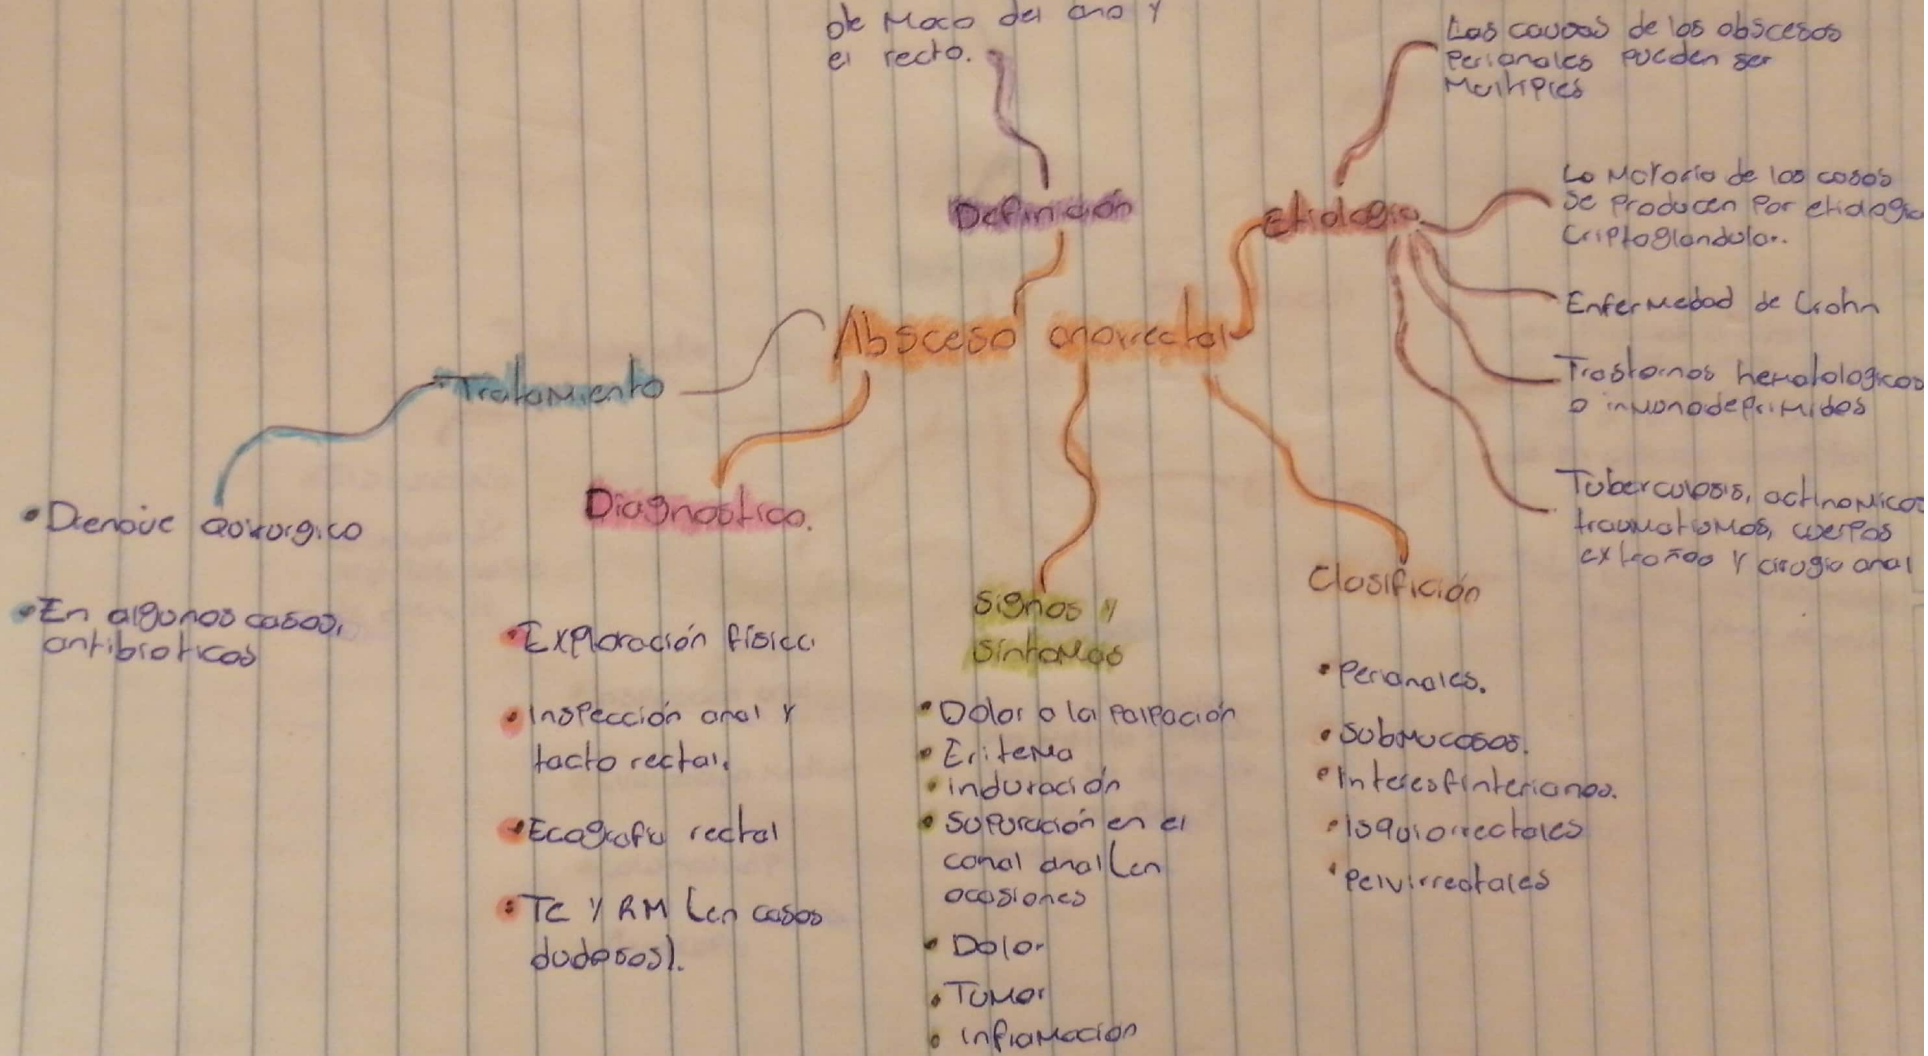 de moco del ano y
el recto.
Las causas de los abscesos
perianales pueden ser
multiples
Definición
Etiologia
La mayoria de los casos
se producen por etiologia
criptoglandular.
Enfermedad de Crohn
Trastornos hematologicos
o inmunodeprimidos
Tuberculosis, actinomicos
traumatismos, cuerpos
extraños y cirugia anal
Absceso anorrectal
Tratamiento
• Drenaje quirurgico
• En algunos casos,
antibioticos
Diagnostico.
• Exploración física
• Inspección anal y
tacto rectal.
• Ecografia rectal
• TC y RM (en casos
dudosos).
Signos y
sintomas
• Dolor a la palpación
• Eritema
• induración
• Supuración en el
canal anal (en
ocasiones
• Dolor
• Tumor
• Inflamación
Clasifición
• Perianales.
• Submucosos.
• Interesfinterianos.
• Isquiorrectales
• Pelvirrectales